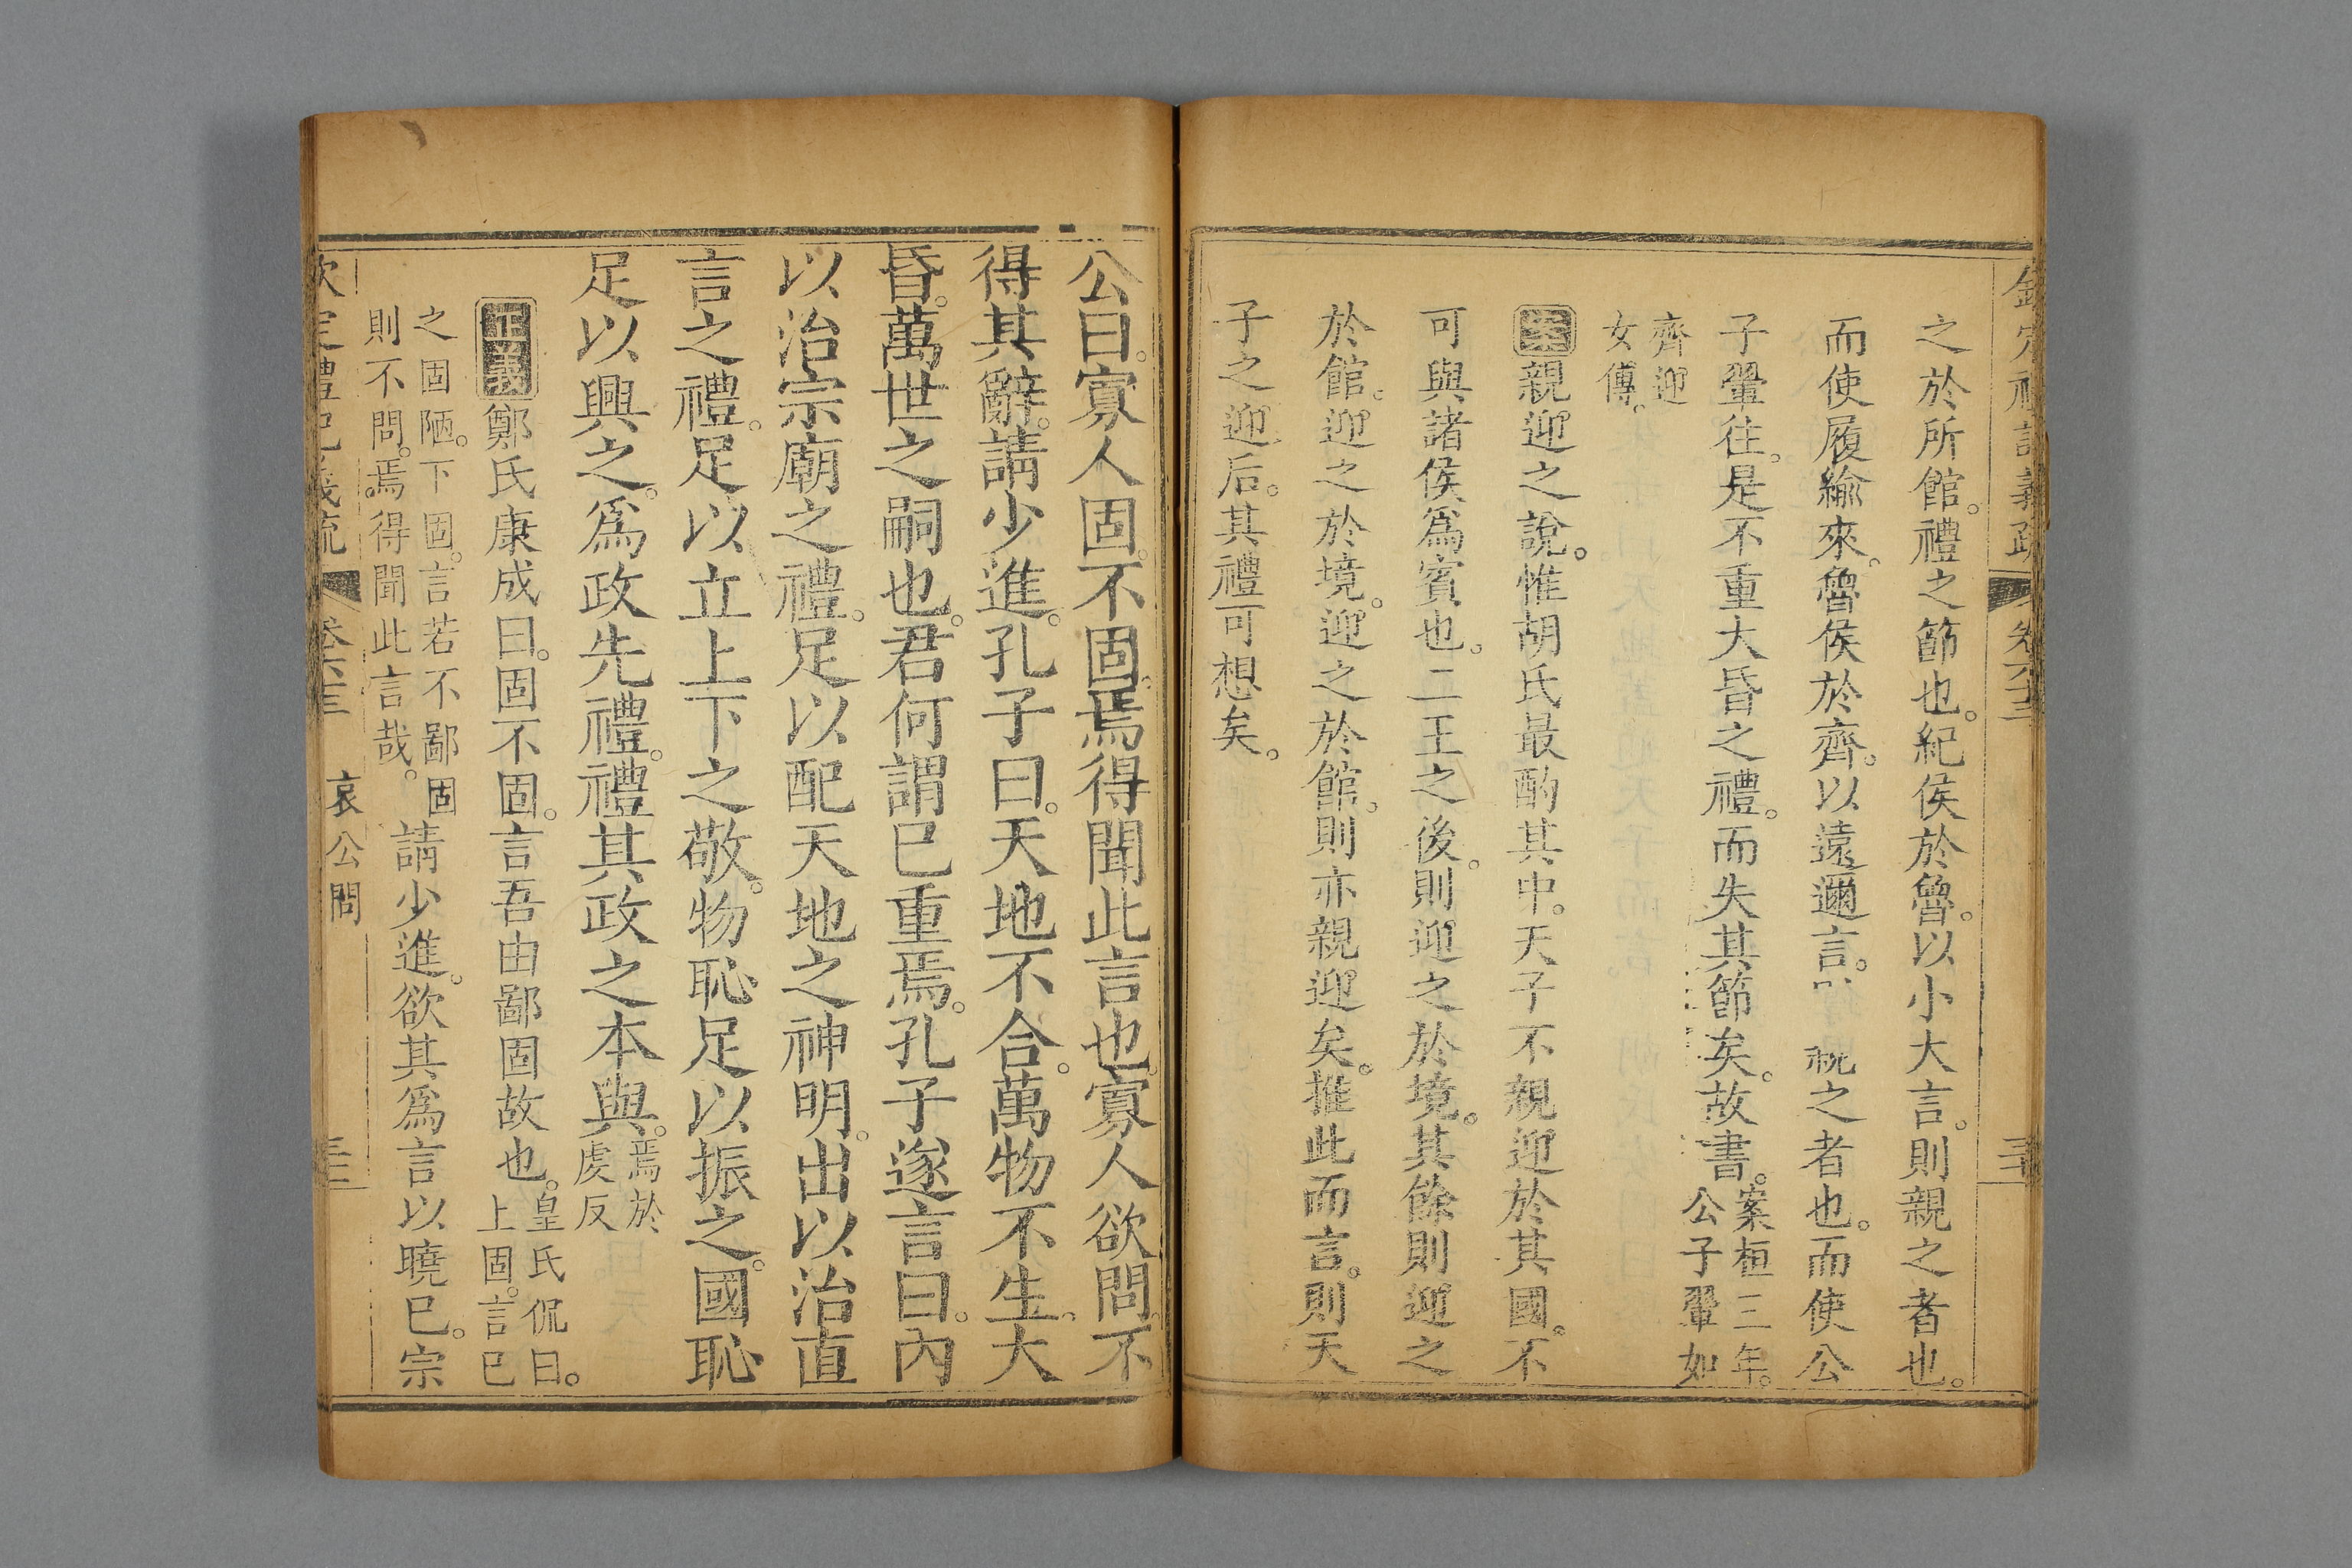 之於所館。禮之節也。紀侯於魯。以小大言。則親之者也。
而使履緰來。魯侯於齊。以遠邇言。親之者也。而使公
子翬往。是不重大昏之禮。而失其節矣。故書。案桓三年。
公子翬如
齊迎
女傳。
案親迎之說。惟胡氏最酌其中。天子不親迎於其國。不
可與諸侯爲賓也。二王之後。則迎之於境。其餘則迎之
於館。迎之於境。迎之於館。則亦親迎矣。推此而言。則天
子之迎后。其禮可想矣。
公曰。寡人固。不固。焉得聞此言也。寡人欲問。不
得其辭。請少進。孔子曰。天地不合。萬物不生。大
昏。萬世之嗣也。君何謂已重焉。孔子遂言曰。內
以治宗廟之禮。足以配天地之神明。出以治直
言之禮。足以立上下之敬。物恥足以振之。國恥
足以興之。爲政先禮。禮其政之本與。焉於
虔反
正義鄭氏康成曰。固不固。言吾由鄙固故也。皇氏侃曰。
上固。言已
之固陋。下固。言若不鄙固
則不問。焉得聞此言哉。請少進。欲其爲言以曉已。宗
欽定禮記義疏 卷六十三 哀公問 三十三